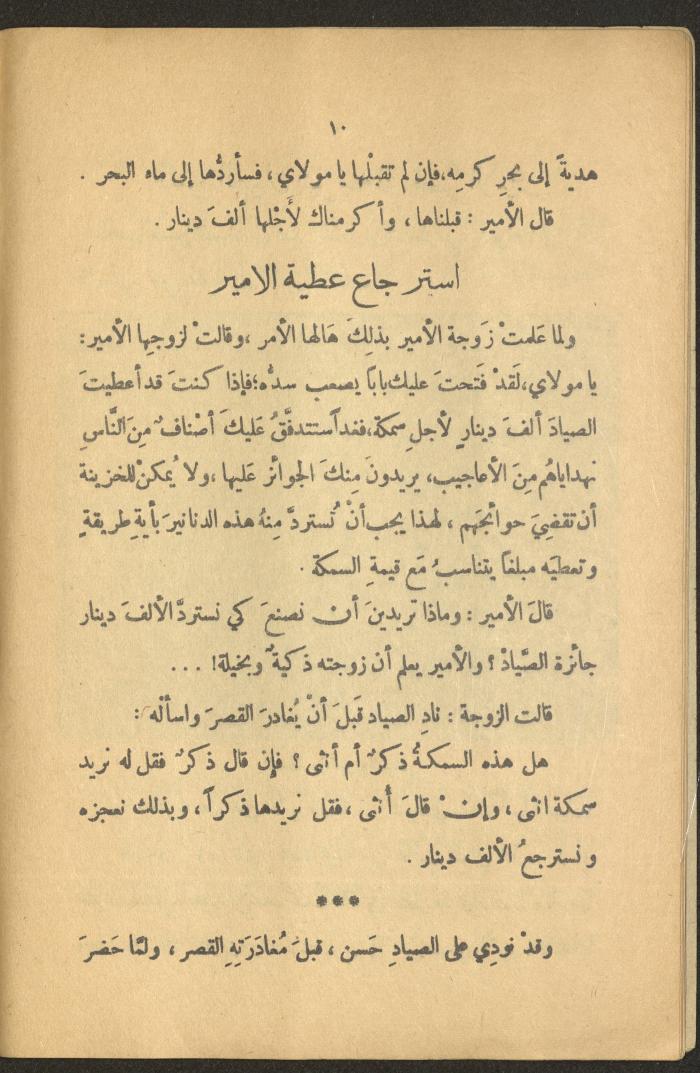 ١٠
هديةً إلى بحرِ كرمِه،فإن لم تقبلْها يا مولاي ، فسأردُّها إلى ماء البحر .
قال الأمير : قبلناها ، وأكرمناك لأَجْلها ألفَ دينار .
استرجاع عطية الامير
ولما عَلمتْ زَوجة الأمير بذلِكَ هَالها الأمر ،وقالتْ لزوجِها الأمير:
يا مولاي،لَقدْ فَتحتَ عليك باباً يصعب سدُّه؛فإذا كنتَ قد أعطيتَ
الصيادَ ألفَ دينارٍ لأجلِ سمكة،فغداً ستتدفَّقُ عَليكَ أصْنافٌ مِنَ النَّاسِ
بهداياهُم مِنَ الأعاجيب، يريدونَ مِنكَ الجوائز عَليها ،ولا يُمكنْ للخزينة
أن تقضِيَ حوائجَهم ، لهذا يجب أنْ تُستردَّ مِنهُ هذه الدنانيرَ بأيةِ طريقةٍ
وتعطيَه مبلغاً يتناسبُ مَع قيمةِ السمكة .
قالَ الأمير : وماذا تريدينَ أن نصنعَ كي نستردَّ الألفَ دينار
جائزة الصَّيادْ ؟ والأمير يعلم أن زوجته ذكيةٌ وبخيلة! ...
قالت الزوجة : نادِ الصياد قَبلَ أنْ يُغادرَ القصرَ واسألْه :
هل هذه السمكةُ ذكرٌ أم أنثى ؟ فإِن قال ذكرٌ فقل له نريد
سمكة انثى ، وإنْ قالَ أُنثى ،فقل نريدها ذكراً ، وبذلك نعجزه
ونسترجعُ الألف دينار .
***
وقدْ نودِي على الصيادِ حَسن ، قبلَ مُغادَرَتِهِ القصر ، ولمَّا حَضرَ